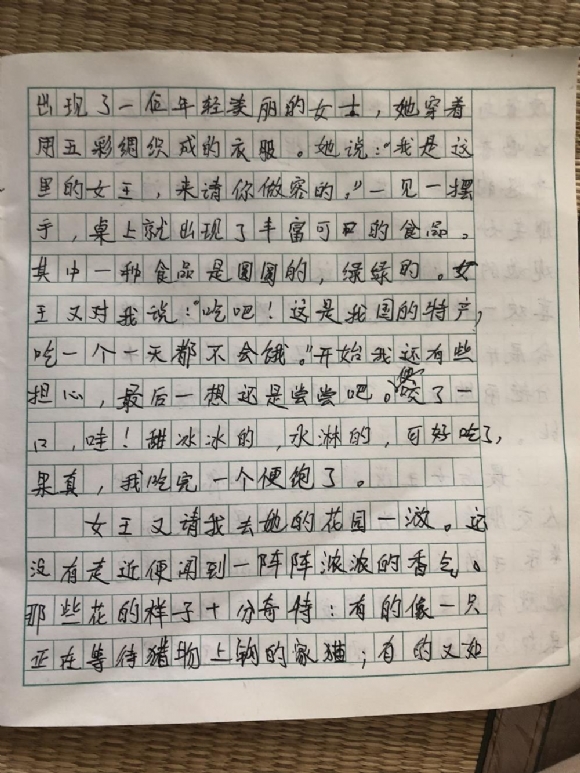 出现了一位年轻美丽的女士，她穿着
用五彩绸织成的衣服。她说：“我是这
里的女王，来请你做客的。”一见一摆
手，桌上就出现了丰富可口的食品。
其中一种食品是圆圆的，绿绿的。女
王又对我说：“吃吧！这是我国的特产，
吃一个一天都不会饿。”开始我还有些
担心，最后一想还是尝尝吧。咬了
口，哇！甜冰冰的，水淋的，可好吃了，
果真，我吃完一个便饱了。
女王又请我去她的花园一游。还
没有走近便闻到一阵阵浓浓的香气。
那些花的样子十分奇特：有的像一只
正在等待猎物上钩的家猫；有的又如